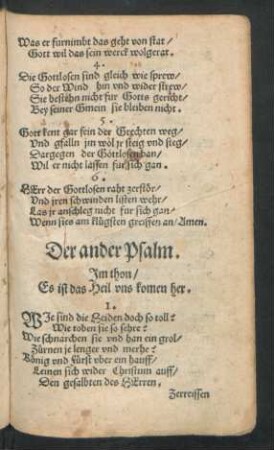 Was er furnimbt das geht von stat/
Gott wil das sein werck wolgerat.
4.
Die Gottlosen sind gleich wie sprew/
So der Wind hin vnd wider strew/
Sie bestehn nicht fur Gotts gericht/
Bey seiner Gmein sie bleiben nicht.
5.
Gott kent gar fein der Grechten weg/
Vnd gfalln jm wol jr steig vnd steg/
Dargegen der Gottlosen ban/
Wil er nicht lassen fur sich gan.
6.
HErr der Gottlosen raht zerstör/
Vnd jren schwinden listen wehr/
Las jr anschleg nicht fur sich gan/
Wenn sies am klügsten greiffen an/Amen.
Der ander Psalm.
Im thon/
Es ist das Heil vns komen her.
1.
WJe sind die Heiden doch so toll?
Wie toben sie so sehre?
Wie schnarchen sie vnd han ein grol/
Zürnen je lenger vnd merhe?
König vnd Fürst vber ein hauff/
Leinen sich wider Christum auff/
Den gesalbten des HErren.
Zerreissen